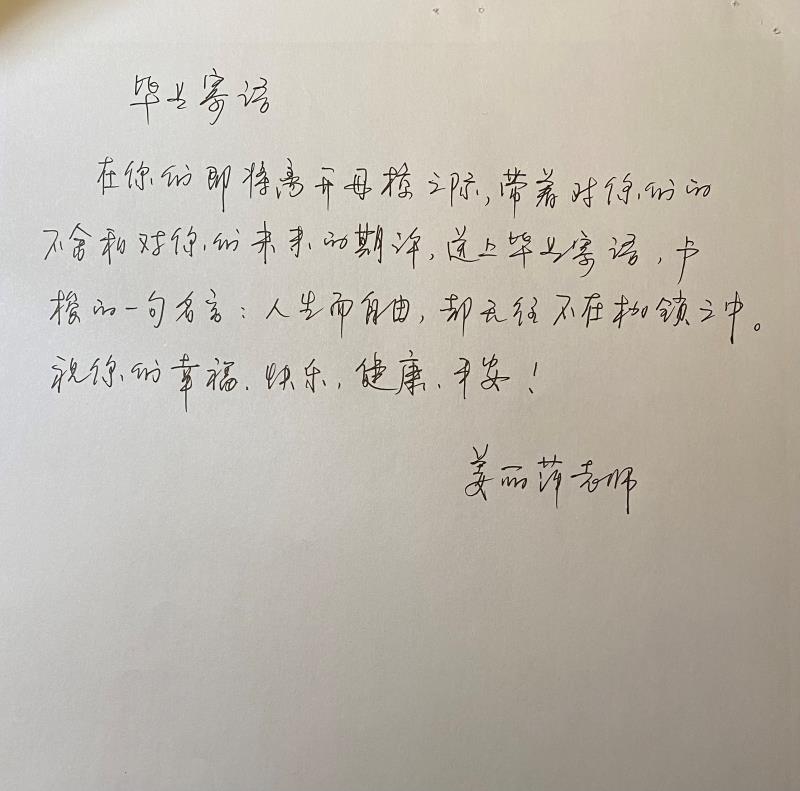 毕业寄语
在你们即将离开母校之际，带着对你们的
不舍和对你们未来的期许，送上毕业寄语，卢
梭的一句名言：人生而自由，却无往不在枷锁之中。
祝你们幸福、快乐、健康、平安！
姜丽萍老师